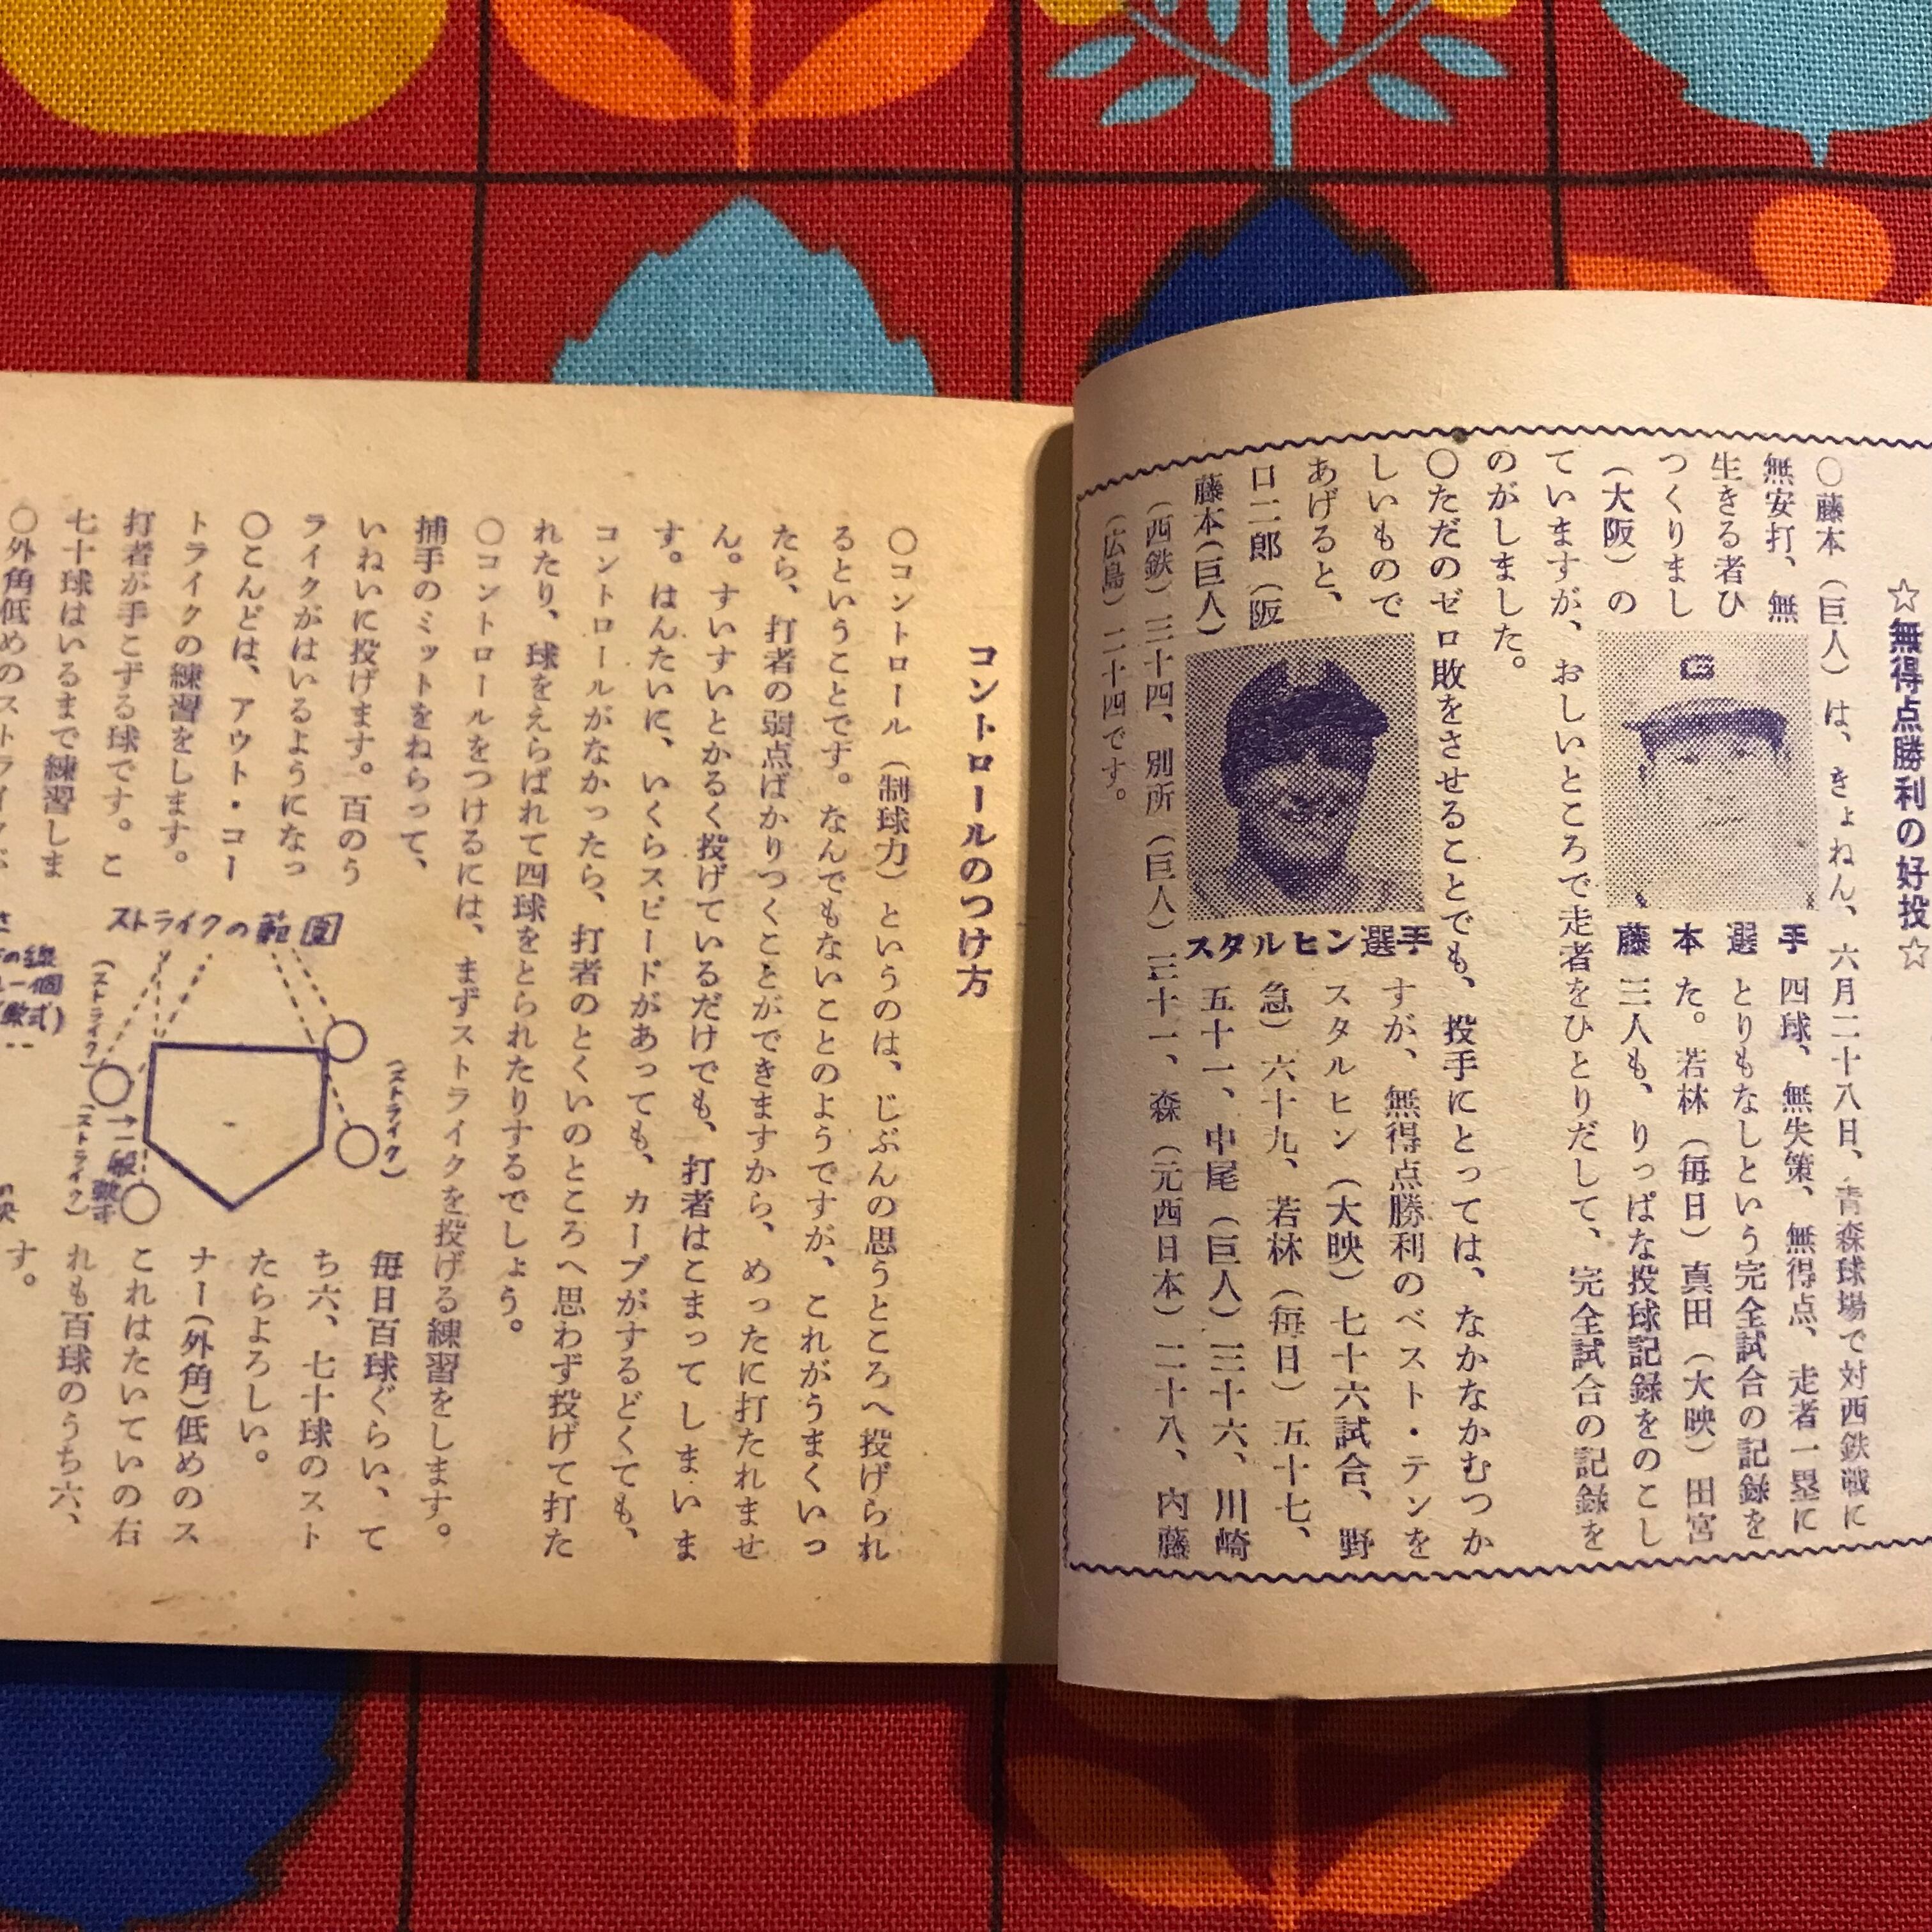 ☆無得点勝利の好投☆
〇藤本（巨人）は、きょねん、六月二十八日、青森球場で対西鉄戦に
無安打、無四球、無失策、無得点、走者一塁に
生きる者ひとりもなしという完全試合の記録を
つくりました。若林（毎日）真田（大映）田宮
（大阪）の三人も、りっぱな投球記録をのこし
ていますが、おしいところで走者をひとりだして、完全試合の記録を
のがしました。
〇ただのゼロ敗をさせることでも、投手にとっては、なかなかむつか
しいものですが、無得点勝利のベスト・テンを
あげると、スタルヒン（大映）七十六試合、野
口二郎（阪急）六十九、若林（毎日）五十七、
藤本（巨人）五十一、中尾（巨人）三十六、川崎
（西鉄）三十四、別所（巨人）三十一、森（元西日本）二十八、内藤
（広島）二十四です。
藤本選手
スタルヒン選手
コントロールのつけ方
〇コントロール（制球力）というのは、じぶんの思うところへ投げられ
るということです。なんでもないことのようですが、これがうまくいっ
たら、打者の弱点ばかりつくことができますから、めったに打たれませ
ん。すいすいとかるく投げているだけでも、打者はこまってしまいま
す。はんたいに、いくらスピードがあっても、カーブがするどくても、
コントロールがなかったら、打者のとくいのところへ思わず投げて打た
れたり、球をえらばれて四球をとられたりするでしょう。
〇コントロールをつけるには、まずストライクを投げる練習をします。
捕手のミットをねらって、毎日百球ぐらい、て
いねいに投げます。百のうち六、七十球のスト
ライクがはいるようになったらよろしい。
〇こんどは、アウト・コーナー（外角）低めのス
トライクの練習をします。これはたいていの右
打者が手こずる球です。これも百球のうち六、
七十球はいるまで練習します。
〇外角低めのストライク
ストライクの範囲
（ストライク）
（ストライク）
（ストライク）